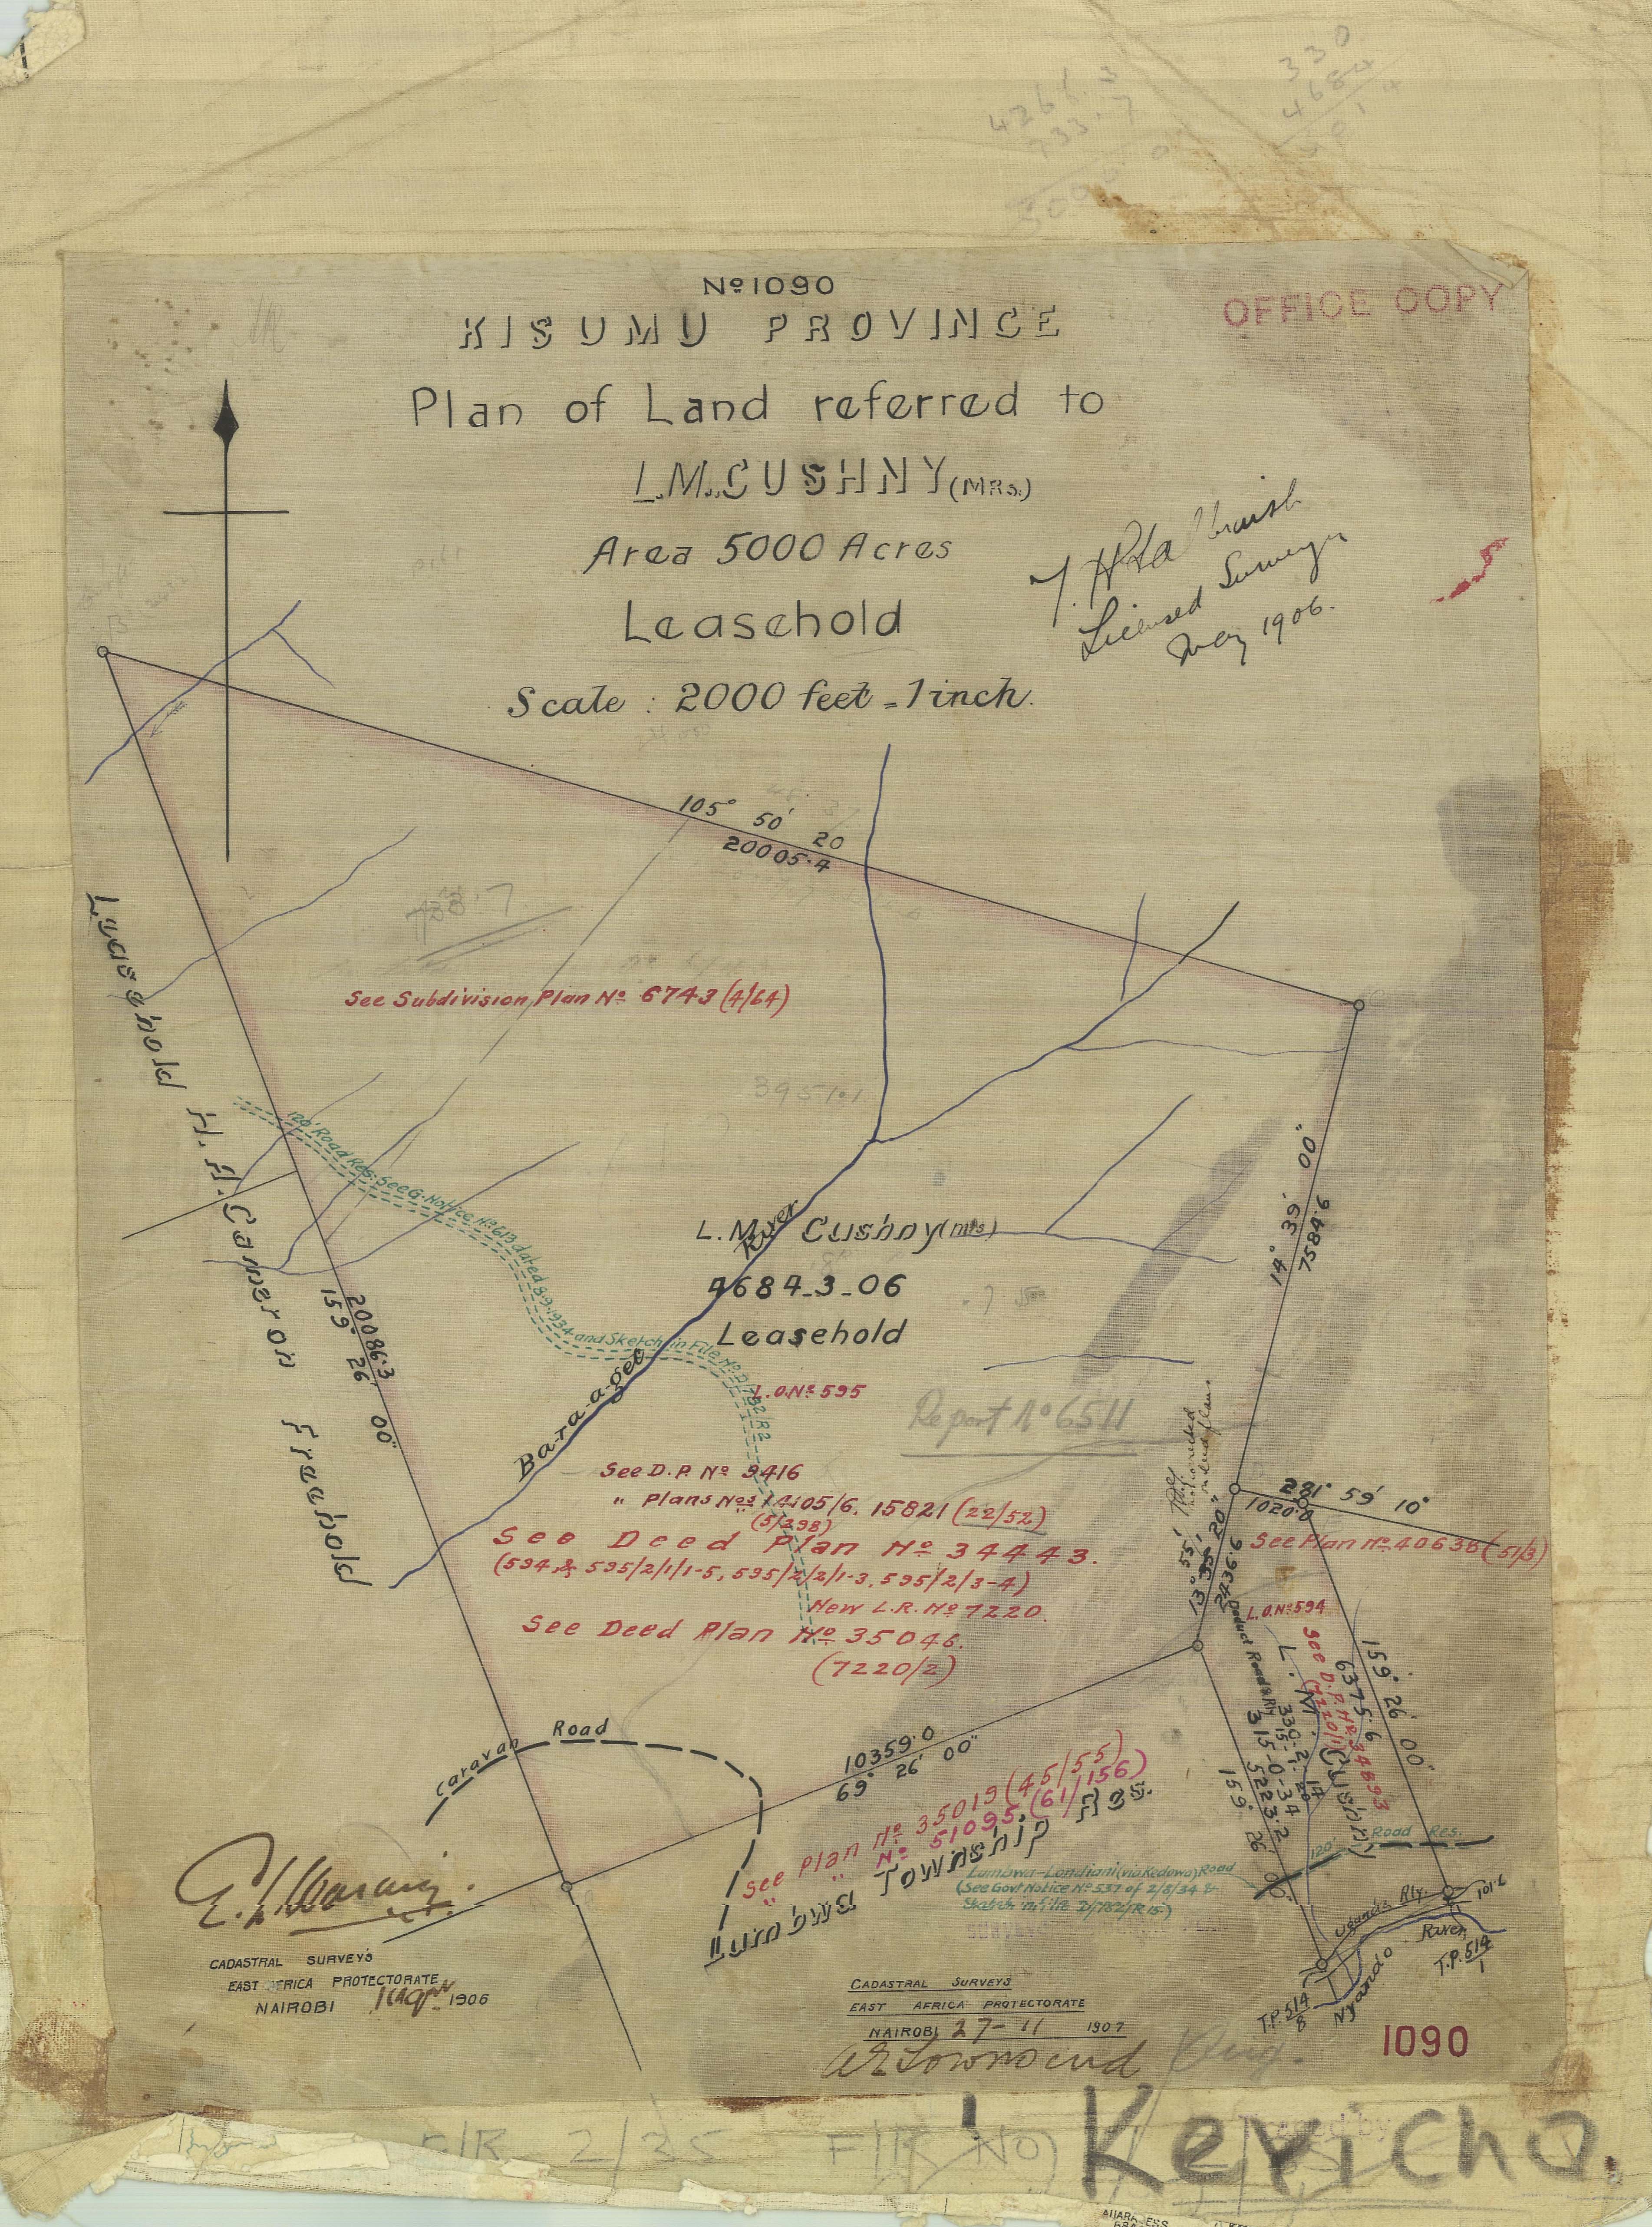 330
4684
4266.3
733.7
Nº 1090
OFFICE COPY
KISUMU PROVINCE
Plan of Land referred to
L.M.CUSHNY (MRS.)
Area 5000 Acres
Leasehold
Scale : 2000 feet = 1 inch.
Licensed Surveyor
May 1906.
105° 50' 20
20005.4
733.7
See Subdivision Plan Nº 6743 (4/64)
3951.1
Leasehold H.H. Cameron Freehold
120' Road Res. See G. Notice Nº 613 dated 8.9.1934 and Sketch in File Nº D/782/R2
20086.3
159° 26' 00"
14° 39' 00"
7584.6
L.M. Cushny (Mrs)
4684-3-06
Leasehold
Bara-a-get River
L.O.Nº 595
Report Nº 6511
See D.P. Nº 9416
" Plans Nos 14105/6, 15821 (22/52)
(5/298)
See Deed Plan Nº 34443.
(594 & 595/2/1/1-5, 595/2/2/1-3, 595/2/3-4)
New L.R. Nº 7220.
See Deed Plan Nº 35046.
(7220/2)
281° 59' 10"
1020.0
See Plan Nº 40638 (51/3)
13° 55' 20"
2436.6
L.O.Nº 594
L. M. Cushny
See D.P. Nº 34893
(7220/1)
6375.6
159° 26' 00"
Deduct Road & Rly
339.2.14
15.1.20
315-0-34
5223.2
159° 26' 00"
Caravan Road
10359.0
69° 26' 00"
See Plan Nº 35019 (45/55)
" " Nº 51095 (61/156)
Lumbwa Township Res.
120' Road Res.
Lumbwa-Londiani (via Kedowa) Road
(See Govt Notice Nº 537 of 2/8/34 &
Sketch in file D/782/R15)
Uganda Rly.
101.6
Nyando River
T.P. 514/1
T.P. 514/8
CADASTRAL SURVEYS
EAST AFRICA PROTECTORATE
NAIROBI 1906
CADASTRAL SURVEYS
EAST AFRICA PROTECTORATE
NAIROBI 27-11 1907
AE Townsend
1090
F/R 2/35
F/R No
Kericho